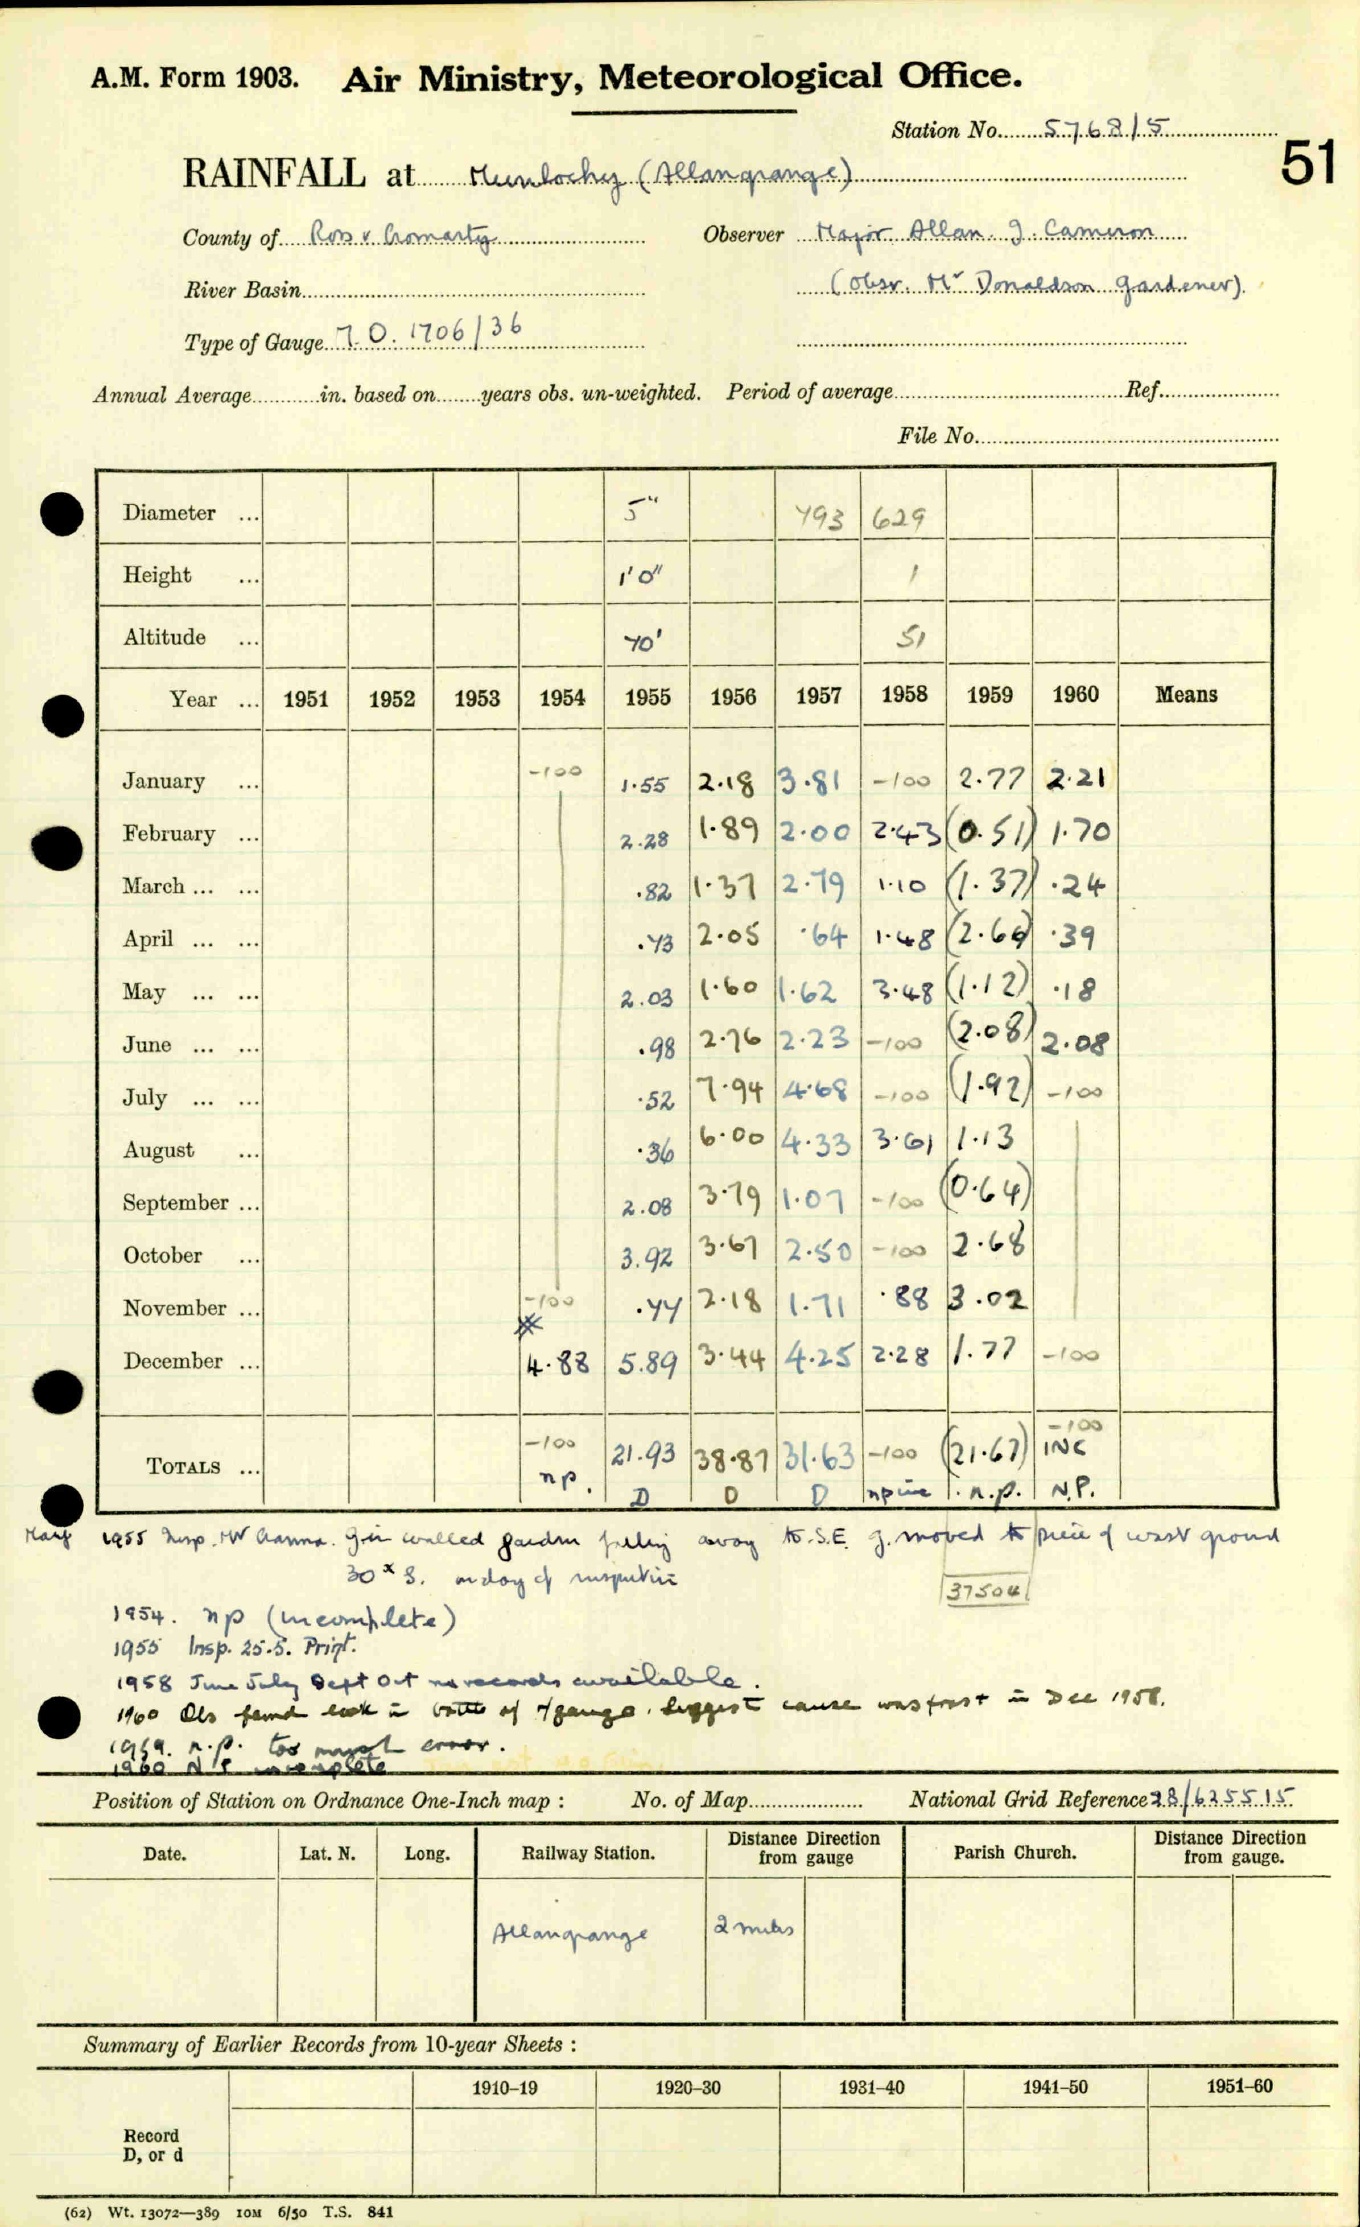 A.M. Form 1903. Air Ministry, Meteorological Office.
Station No. 5768/5
51
RAINFALL at Munlochy (Allangrange)
County of Ross & Cromarty Observer Major Allan J. Cameron
River Basin (Obsr. Mr Donaldson gardener).
Type of Gauge M.O. 1706/36
Annual Average in. based on years obs. un-weighted. Period of average Ref.
File No.
Diameter ... 5" 793 629
Height ... 1'0" 1
Altitude ... 70' 51
Year ... 1951 1952 1953 1954 1955 1956 1957 1958 1959 1960 Means
January ... -100 1.55 2.18 3.81 -100 2.77 2.21
February ... 2.28 1.89 2.00 2.43 (0.51) 1.70
March ... ... .82 1.37 2.79 1.10 (1.37) .24
April ... ... .73 2.05 .64 1.48 (2.66) .39
May ... ... 2.03 1.60 1.62 3.48 (1.12) .18
June ... ... .98 2.76 2.23 -100 (2.08) 2.08
July ... ... .52 7.94 4.68 -100 (1.92) -100
August ... .36 6.00 4.33 3.61 1.13
September ... 2.08 3.79 1.07 -100 (0.64)
October ... 3.92 3.67 2.50 -100 2.68
November ... -100 .77 2.18 1.71 .88 3.02
December ... 4.88 5.89 3.44 4.25 2.28 1.77 -100
TOTALS ... -100 21.93 38.87 31.63 -100 (21.67) -100 INC
np. D D D np inc n.p. N.P.
1955 Insp. walled garden falling away to S.E. g. moved to piece of wast ground
30x S. on day of inspection
37504
1954. np (incomplete)
1955 Insp. 25.5. Print.
1958 June July Sept Oct no records available.
1960 Obs found leak in bottle of gauge. Suggest cause was frost in Dec 1958.
1959. n.p. too much error.
1960 N P incomplete
Position of Station on Ordnance One-Inch map : No. of Map National Grid Reference 28/625515
Date. Lat. N. Long. Railway Station. Distance Direction from gauge Parish Church. Distance Direction from gauge.
Allangrange 2 miles
Summary of Earlier Records from 10-year Sheets :
1910–19 1920–30 1931–40 1941–50 1951–60
Record
D, or d
(62) Wt. 13072—389 10M 6/50 T.S. 841